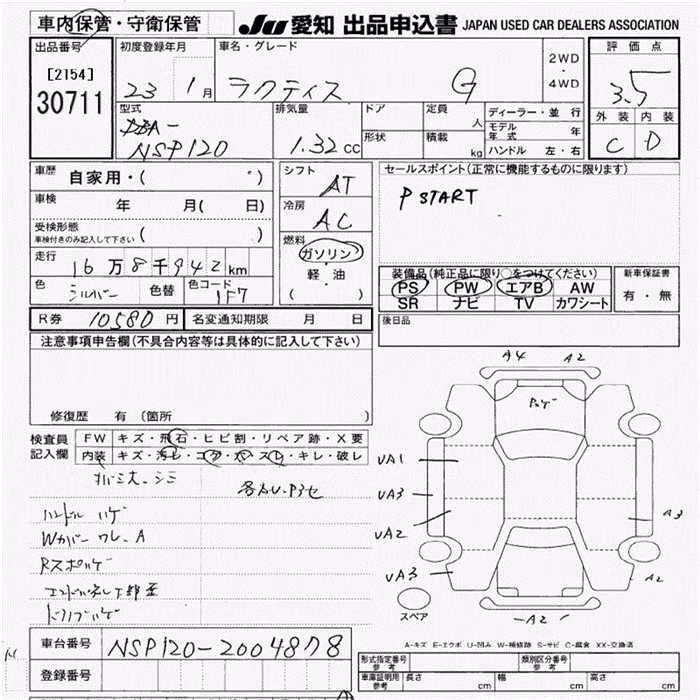 車内保管・守衛保管
JU 愛知 出品申込書 JAPAN USED CAR DEALERS ASSOCIATION
出品番号
[2154]
30711
初度登録年月
23 1月
車名・グレード
ラクティス G
2WD
・
4WD
評価点
3.5
外装 内装
C D
型式
DBA-
NSP120
排気量
1.32cc
ドア
形状
定員
人
積載
kg
ディーラー・並行
モデル年式 年
ハンドル 左・右
車歴
自家用・( )
車検
年 月( 日)
受検形態
車検付きのみ記入して下さい ( )
走行
16万8千942km
色
シルバー
色替
色コード
1F7
シフト
AT
冷房
AC
燃料
ガソリン
・
軽・油
( )
セールスポイント(正常に機能するものに限ります)
P START
装備品(純正品に限り○をつけてください)
PS PW エアB AW
SR ナビ TV カワシート
新車保証書
有・無
R券 10580円 名変通知期限 月 日
後日品
注意事項申告欄(不具合内容等は具体的に記入して下さい)
修復歴 有(箇所 )
検査員
記入欄
FW キズ・飛石・ヒビ割・リペア跡・X要
内装 キズ・汚レ・コゲ・穴・スレ・キレ・破レ
ハンドル ハゲ
Wカバー ワレ、A
A4 A2
UA1
UA3
UA2
UA3
A3
A2
A2
スペア
A-キズ E-エクボ U-凹み W-補修跡 S-サビ C-腐食 XX-交換済
車台番号 NSP120-2004878
登録番号
形式指定番号
参考
類別区分番号
参考
車庫証明用
参考
長さ cm 幅 cm 高さ cm